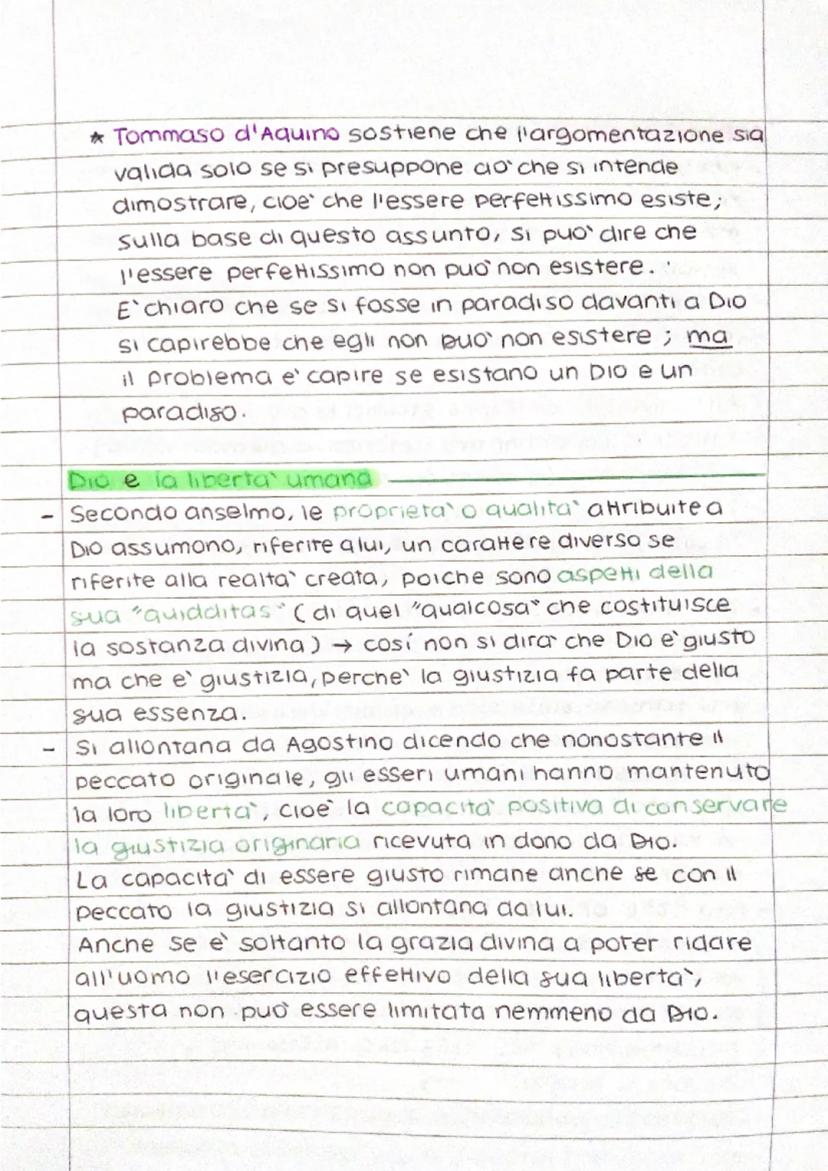 ★ Tommaso d'Aquino sostiene che l'argomentazione sia
valida solo se si presuppone ciò che si intende
dimostrare, cioè che l'essere perfettissimo esiste;
sulla base di questo assunto, si può dire che
l'essere perfettissimo non può non esistere.
E' chiaro che se si fosse in paradiso davanti a Dio
si capirebbe che egli non può non esistere; ma
il problema è capire se esistano un Dio e un
paradiso.
Dio e la libertà umana
- Secondo anselmo, le proprietà o qualità attribuite a
Dio assumono, riferite a lui, un carattere diverso se
riferite alla realtà creata, poiche sono aspetti della
sua "quidditas" (di quel "qualcosa" che costituisce
la sostanza divina) → cosí non si dirà che Dio è giusto
ma che è giustizia, perchè la giustizia fa parte della
sua essenza.
- Si allontana da Agostino dicendo che nonostante il
peccato originale, gli esseri umani hanno mantenuto
la loro libertà, cioè la capacità positiva di conservare
la giustizia originaria ricevuta in dono da Dio.
La capacità di essere giusto rimane anche se con il
peccato la giustizia si allontana da lui.
Anche se è soltanto la grazia divina a poter ridare
all'uomo l'esercizio effettivo della sua libertà,
questa non può essere limitata nemmeno da Dio.